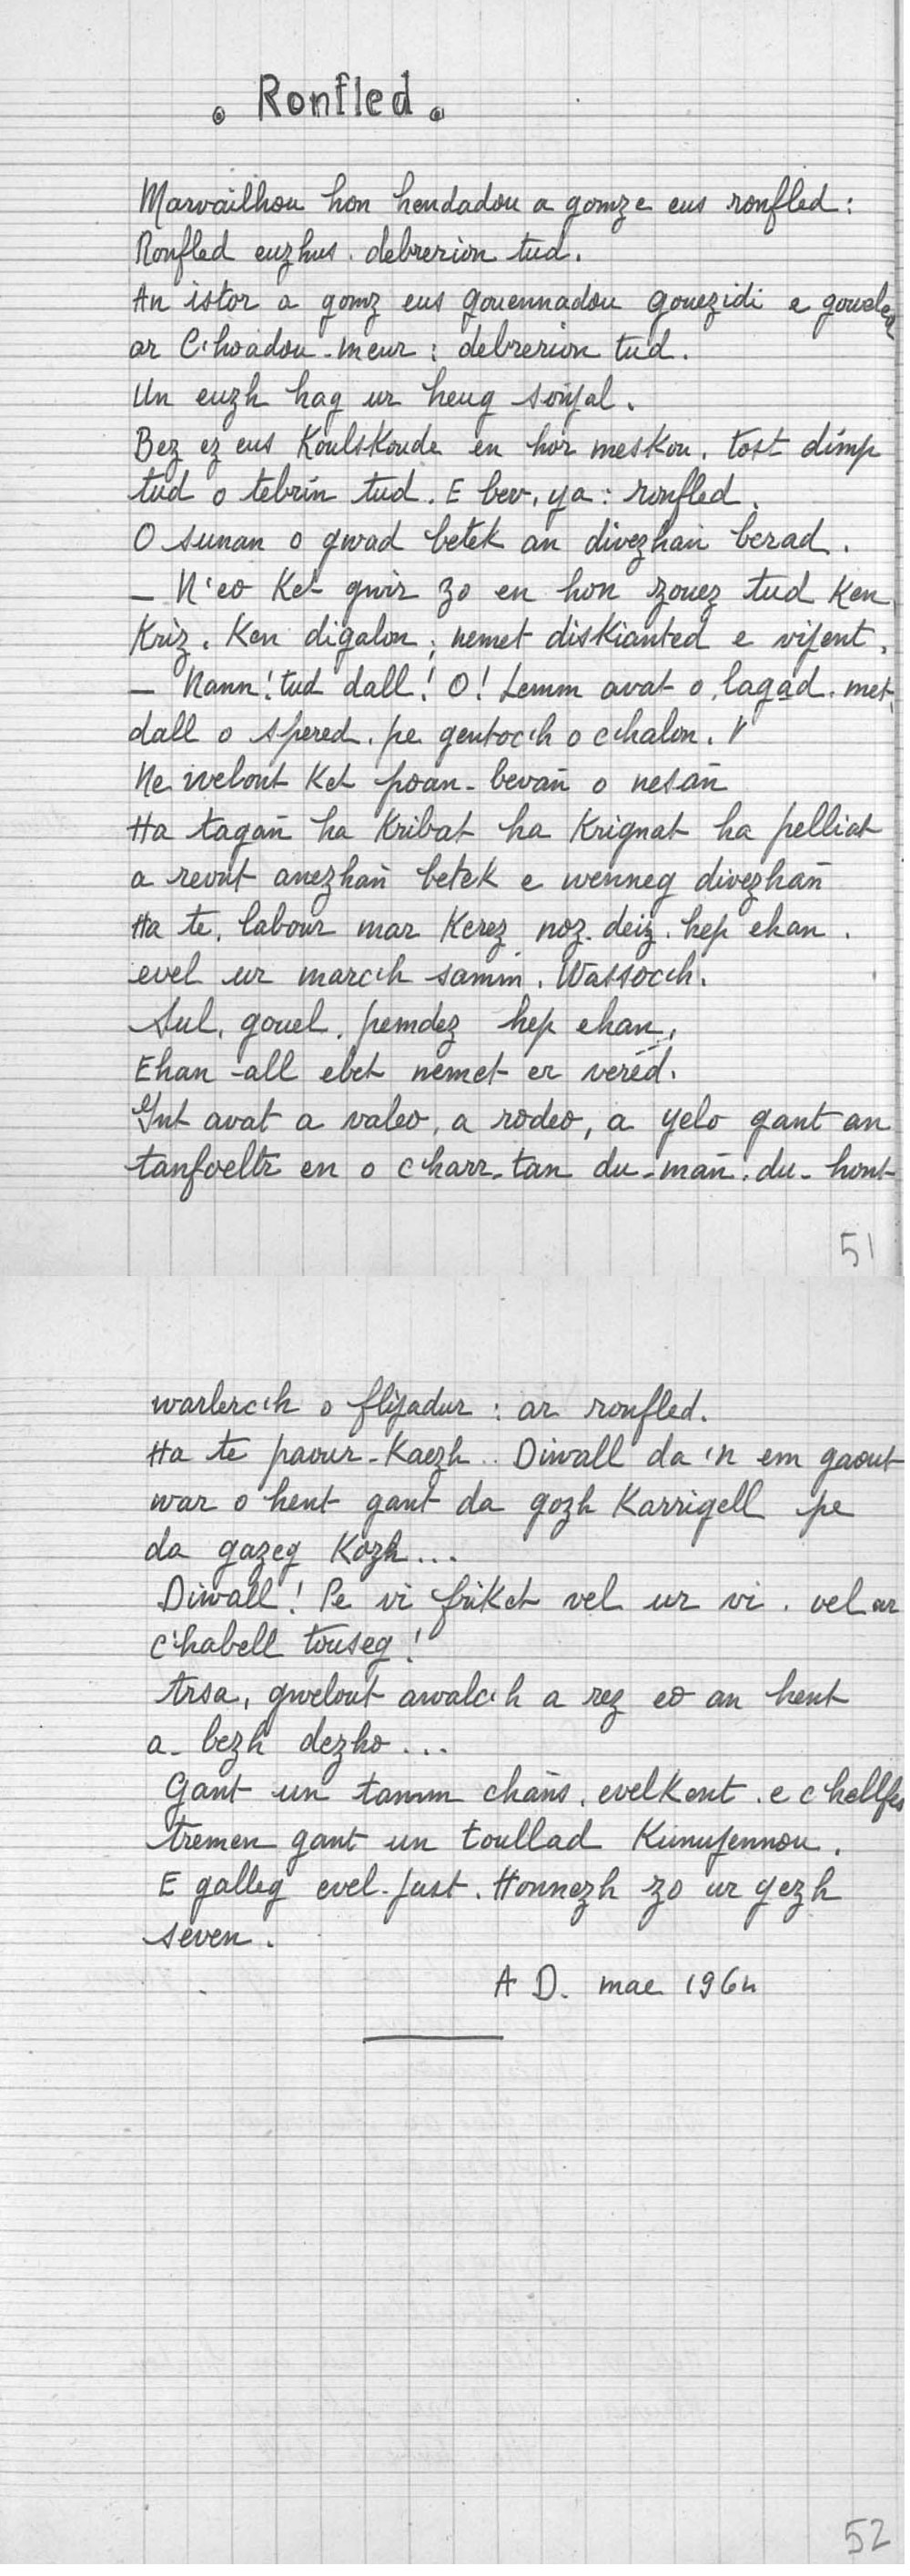 . Ronfled .
Marvailhou hon hendadou a gomze eus ronfled :
Ronfled euzhus. debrerion tud.
An istor a gomz eus gouennadou gouezidi e goueled
ar C'hoadou-meur : debrerion tud.
Un euzh hag ur heug soñjal.
Bez ez eus Koulskoude en hor meskou. tost dimp
tud o tebriñ tud. E bev, ya : ronfled.
O sunan o gwad betek an divezhañ berad.
_ N'eo Ket gwir zo en hon zouez tud Ken
Kriz. Ken digalon ; nemet diskianted e vijent.
_ Nann ! tud dall ! O ! Lemm avat o lagad. met
dall o spered. pe gentoc'h o c'halon. V
Ne welont Ket poan-bevañ o nesañ
Ha tagañ ha Kribat ha Krignat ha pelliat
a reont anezhañ betek e wenneg divezhañ
Ha te, labour mar Kerez noz. deiz. hep ehan.
evel ur marc'h samm. Wassoc'h.
Sul, gouel. pemdez hep ehan.
Ehan-all ebet nemet er vered.
Int avat a valeo, a rodeo, a yelo gant an
tanfoeltr en o c'harr-tan du-mañ. du-hont
51
warlerc'h o flijadur : ar ronfled.
Ha te paour-Kaezh.. Diwall da 'n em gaout
war o hent gant da gozh Karrigell pe
da gazeg Kozh...
Diwall ! Pe vi friket vel ur vi. vel ur
c'habell touseg !
Arsa, gwelout awalc'h a rez eo an hent
a-bezh dezho...
Gant un tamm chañs. evelkent. e c'hellfes
tremen gant un toullad Kunujennou.
E galleg evel-just. Honnezh zo ur yezh
seven.
A D. mae 1964
52